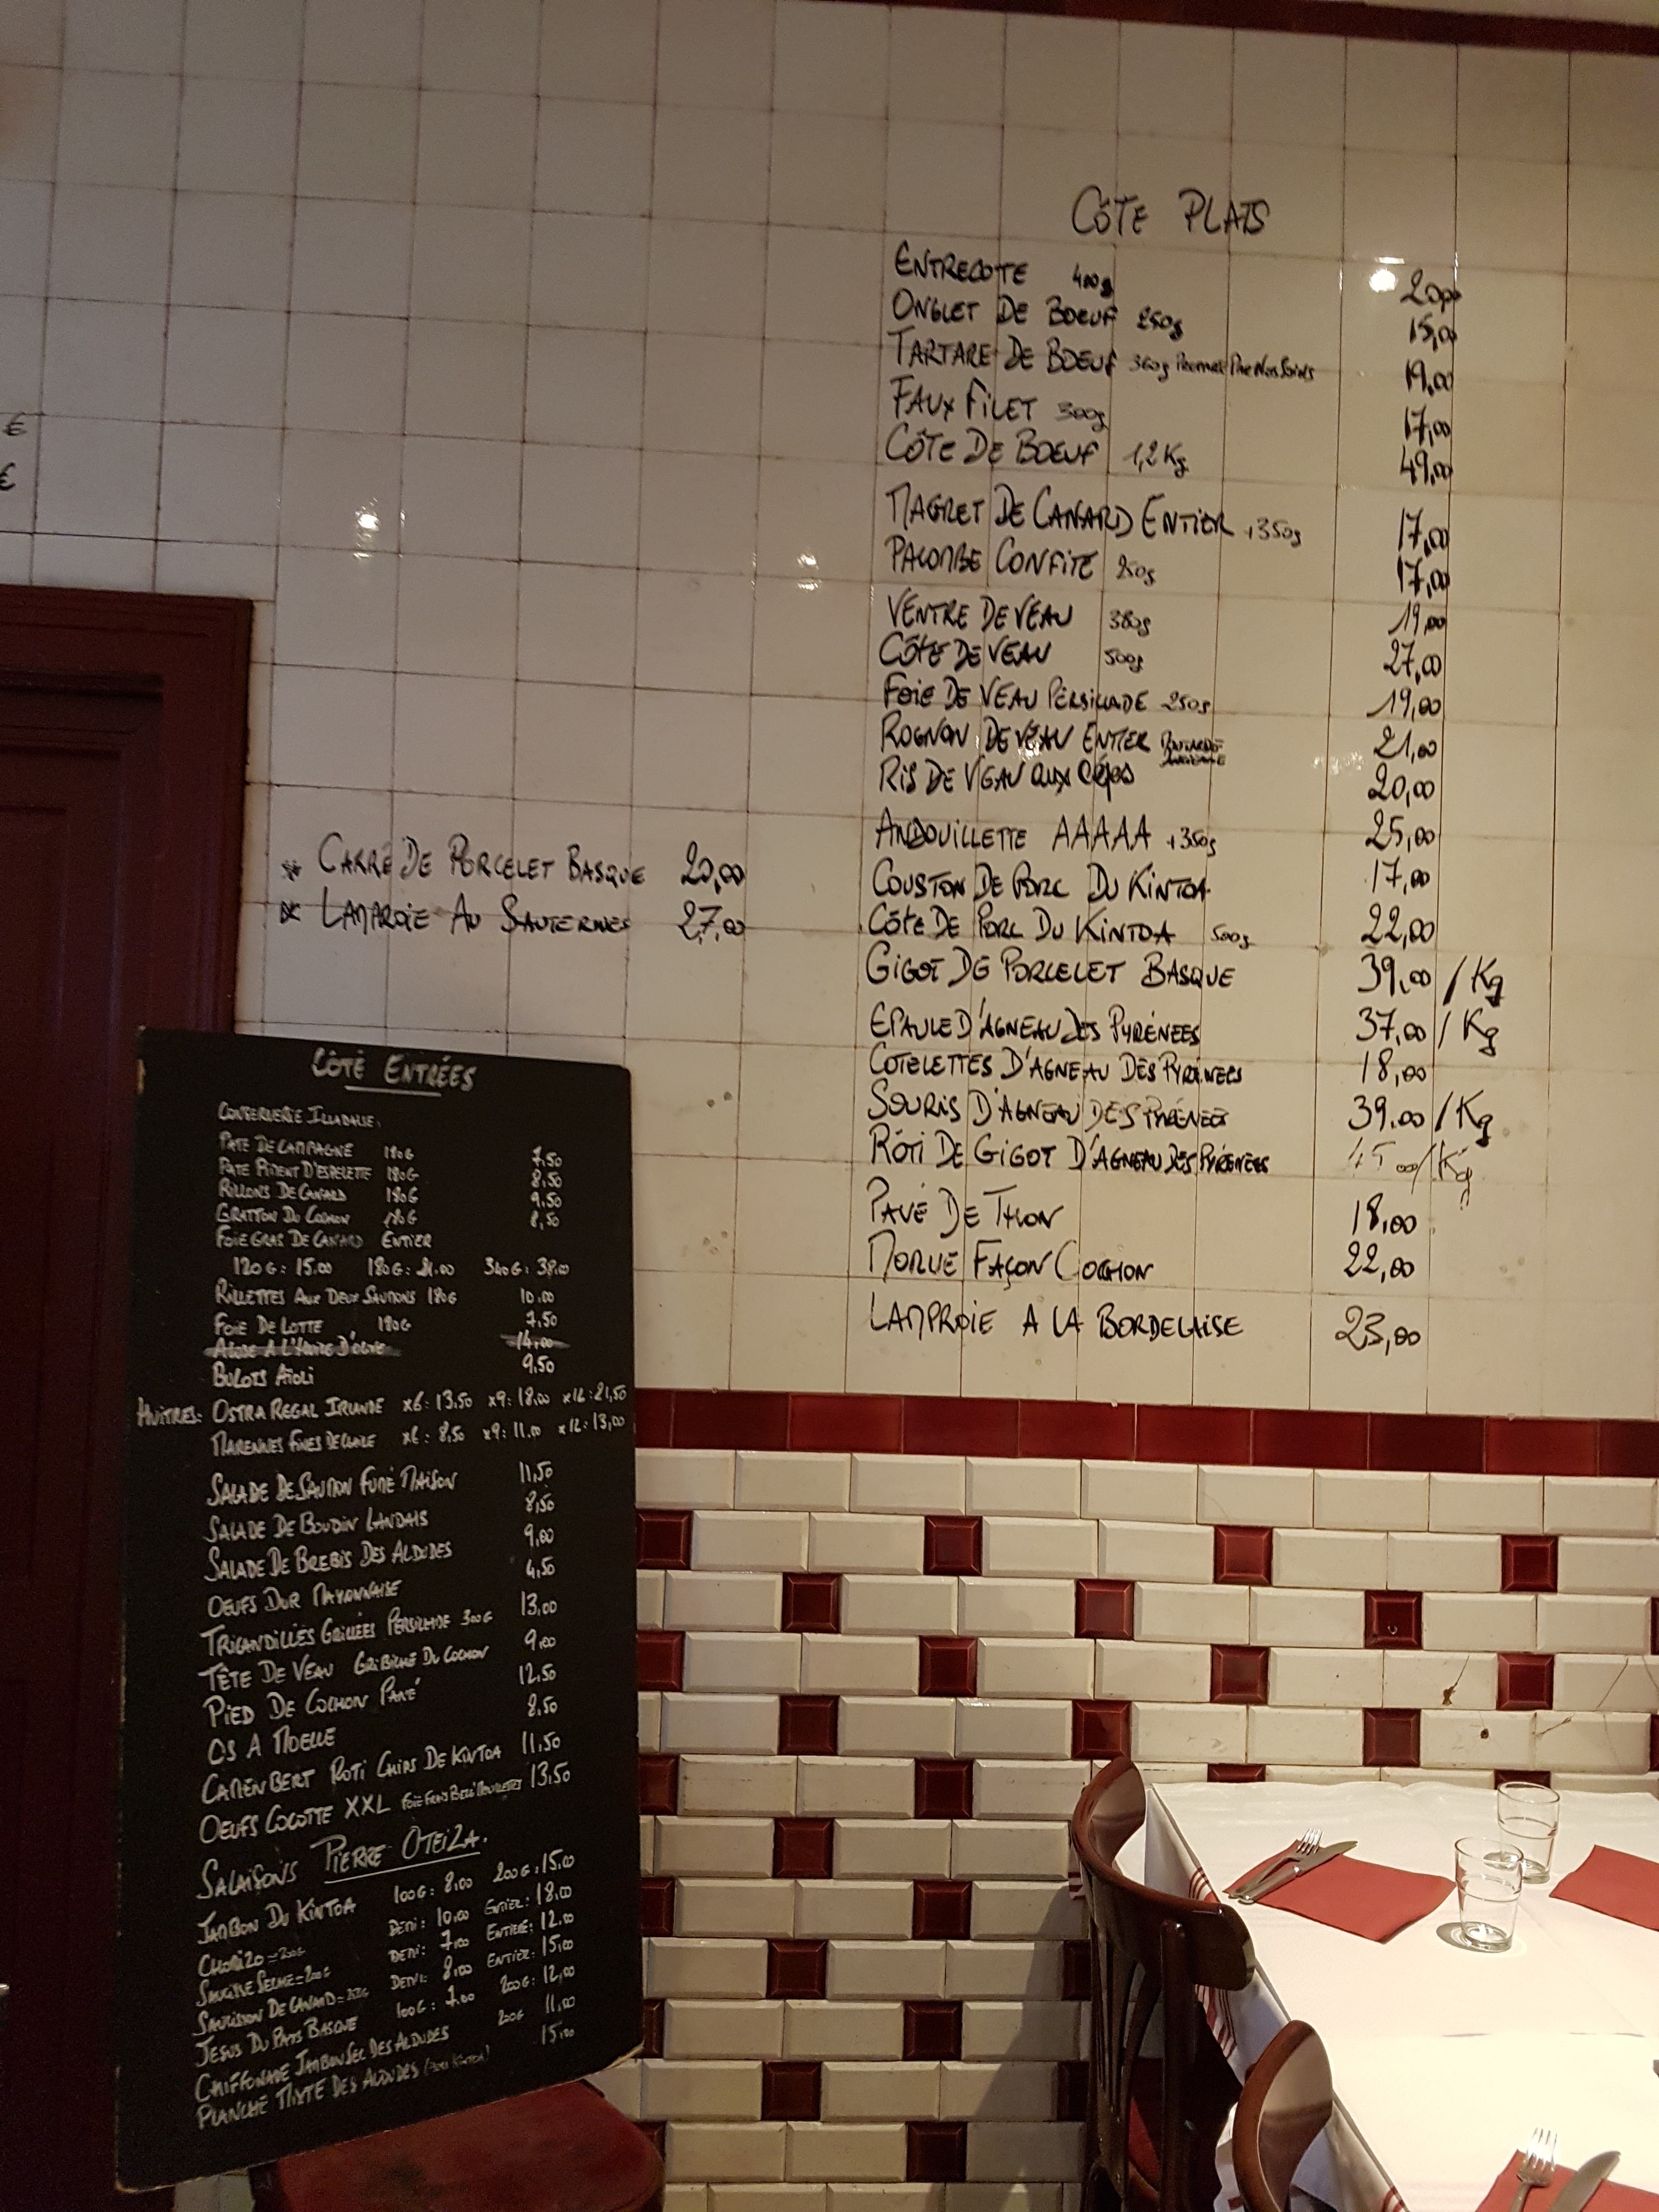 €
€
CÔTE PLATS
ENTRECOTE 400g 20,00
ONGLET DE BOEUF 250g 15,00
TARTARE DE BOEUF 360g Par Nos Soins 19,00
FAUX FILET 300g 17,00
CÔTE DE BOEUF 1,2 Kg 49,00
MAGRET DE CANARD ENTIER +350g 17,00
PALOMBE CONFITE 250g 17,00
VENTRE DE VEAU 380g 19,00
CÔTE DE VEAU 500g 27,00
FOIE DE VEAU PERSILLADE 250g 19,00
ROGNON DE VEAU ENTIER MOUTARDE ANCIENNE 21,00
RIS DE VEAU AUX CÈPES 20,00
ANDOUILLETTE AAAAA +350g 25,00
COUSTON DE PORC DU KINTOA 17,00
CÔTE DE PORC DU KINTOA 500g 22,00
GIGOT DE PORCELET BASQUE 39,00 / Kg
EPAULE D'AGNEAU DES PYRÉNÉES 37,00 / Kg
COTELETTES D'AGNEAU DES PYRÉNÉES 18,00
SOURIS D'AGNEAU DES PYRÉNÉES 39.00 / Kg
RÔTI DE GIGOT D'AGNEAU DES PYRÉNÉES 45 00/Kg
PAVÉ DE THON 18,00
MORUE FAÇON COCHON 22,00
LAMPROIE A LA BORDELAISE 23,00
* CARRÉ DE PORCELET BASQUE 20,00
* LAMPROIE AU SAUTERNES 27,00
CÔTÉ ENTRÉES
CONSERVERIE ILLADAISE:
PATE DE CAMPAGNE 180G 7,50
PATE PIMENT D'ESPELETTE 180G 8,50
RILLONS DE CANARD 180G 9,50
GRATTON DU COCHON 180G 8,50
FOIE GRAS DE CANARD ENTIER
120G: 15.00 180G: 21.00 340G: 38,00
RILLETTES AUX DEUX SAUMONS 180G 10.00
FOIE DE LOTTE 180G 7,50
A L'HUILE D'OLIVE 14,00
BULOTS AÏOLI 9,50
HUÎTRES: OSTRA REGAL IRLANDE x6: 13,50 x9: 18,00 x12: 21,50
MARENNES FINES DE CLAIRE x6: 8,50 x9: 11.00 x12: 13,00
SALADE DE SAUMON FUMÉ MAISON 11,50
SALADE DE BOUDIN LANDAIS 8,50
SALADE DE BREBIS DES ALDUDES 9,00
OEUFS DUR MAYONNAISE 4,50
TRICANDILLES GRILLÉES PERSILLADE 300G 13,00
TÊTE DE VEAU GRIBICHE DU COCHON 9,00
PIED DE COCHON PANÉ 12,50
OS A MOELLE 8,50
CAMEMBERT ROTI CHIPS DE KINTOA 11,50
OEUFS COCOTTE XXL FOIE FRAIS MOUILLETTES 13,50
SALAISONS PIERRE OTEIZA.
JAMBON DU KINTOA 100G: 8,00 200G: 15,00
CHORIZO = 200G DEMI: 10,00 ENTIER: 18,00
SAUCISSE SECHE = 200G DEMI: 7,00 ENTIERE: 12.00
SAUCISSON DE CANARD = 250G DEMI: 8,00 ENTIER: 15,00
JESUS DU PAYS BASQUE 100G: 7.00 200G: 12,00
CHIFFONADE JAMBON SEC DES ALDUDES 200G 11,00
PLANCHE MIXTE DES ALDUDES 15,00